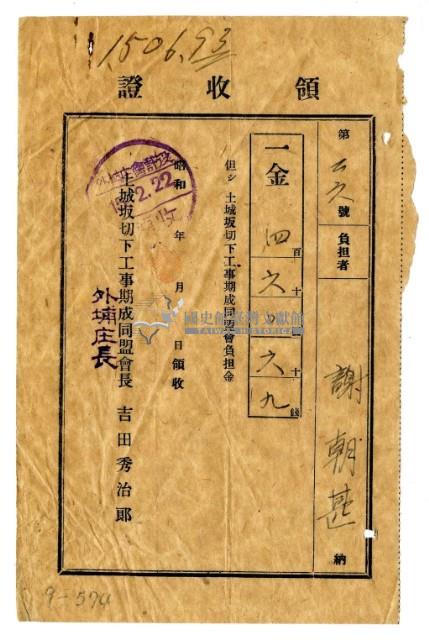 1,506.93
領收證
第二六號 負担者 謝朝甚 納
一金 四百六十 六十九錢
但シ 土城坂切下工事期成同盟會負担金
昭和 年 月 日領收
土城坂切下工事期成同盟會長 吉田秀治郎
外埔庄長
2.22
國史館臺灣文獻館
TAIWAN HISTORICA
9-574